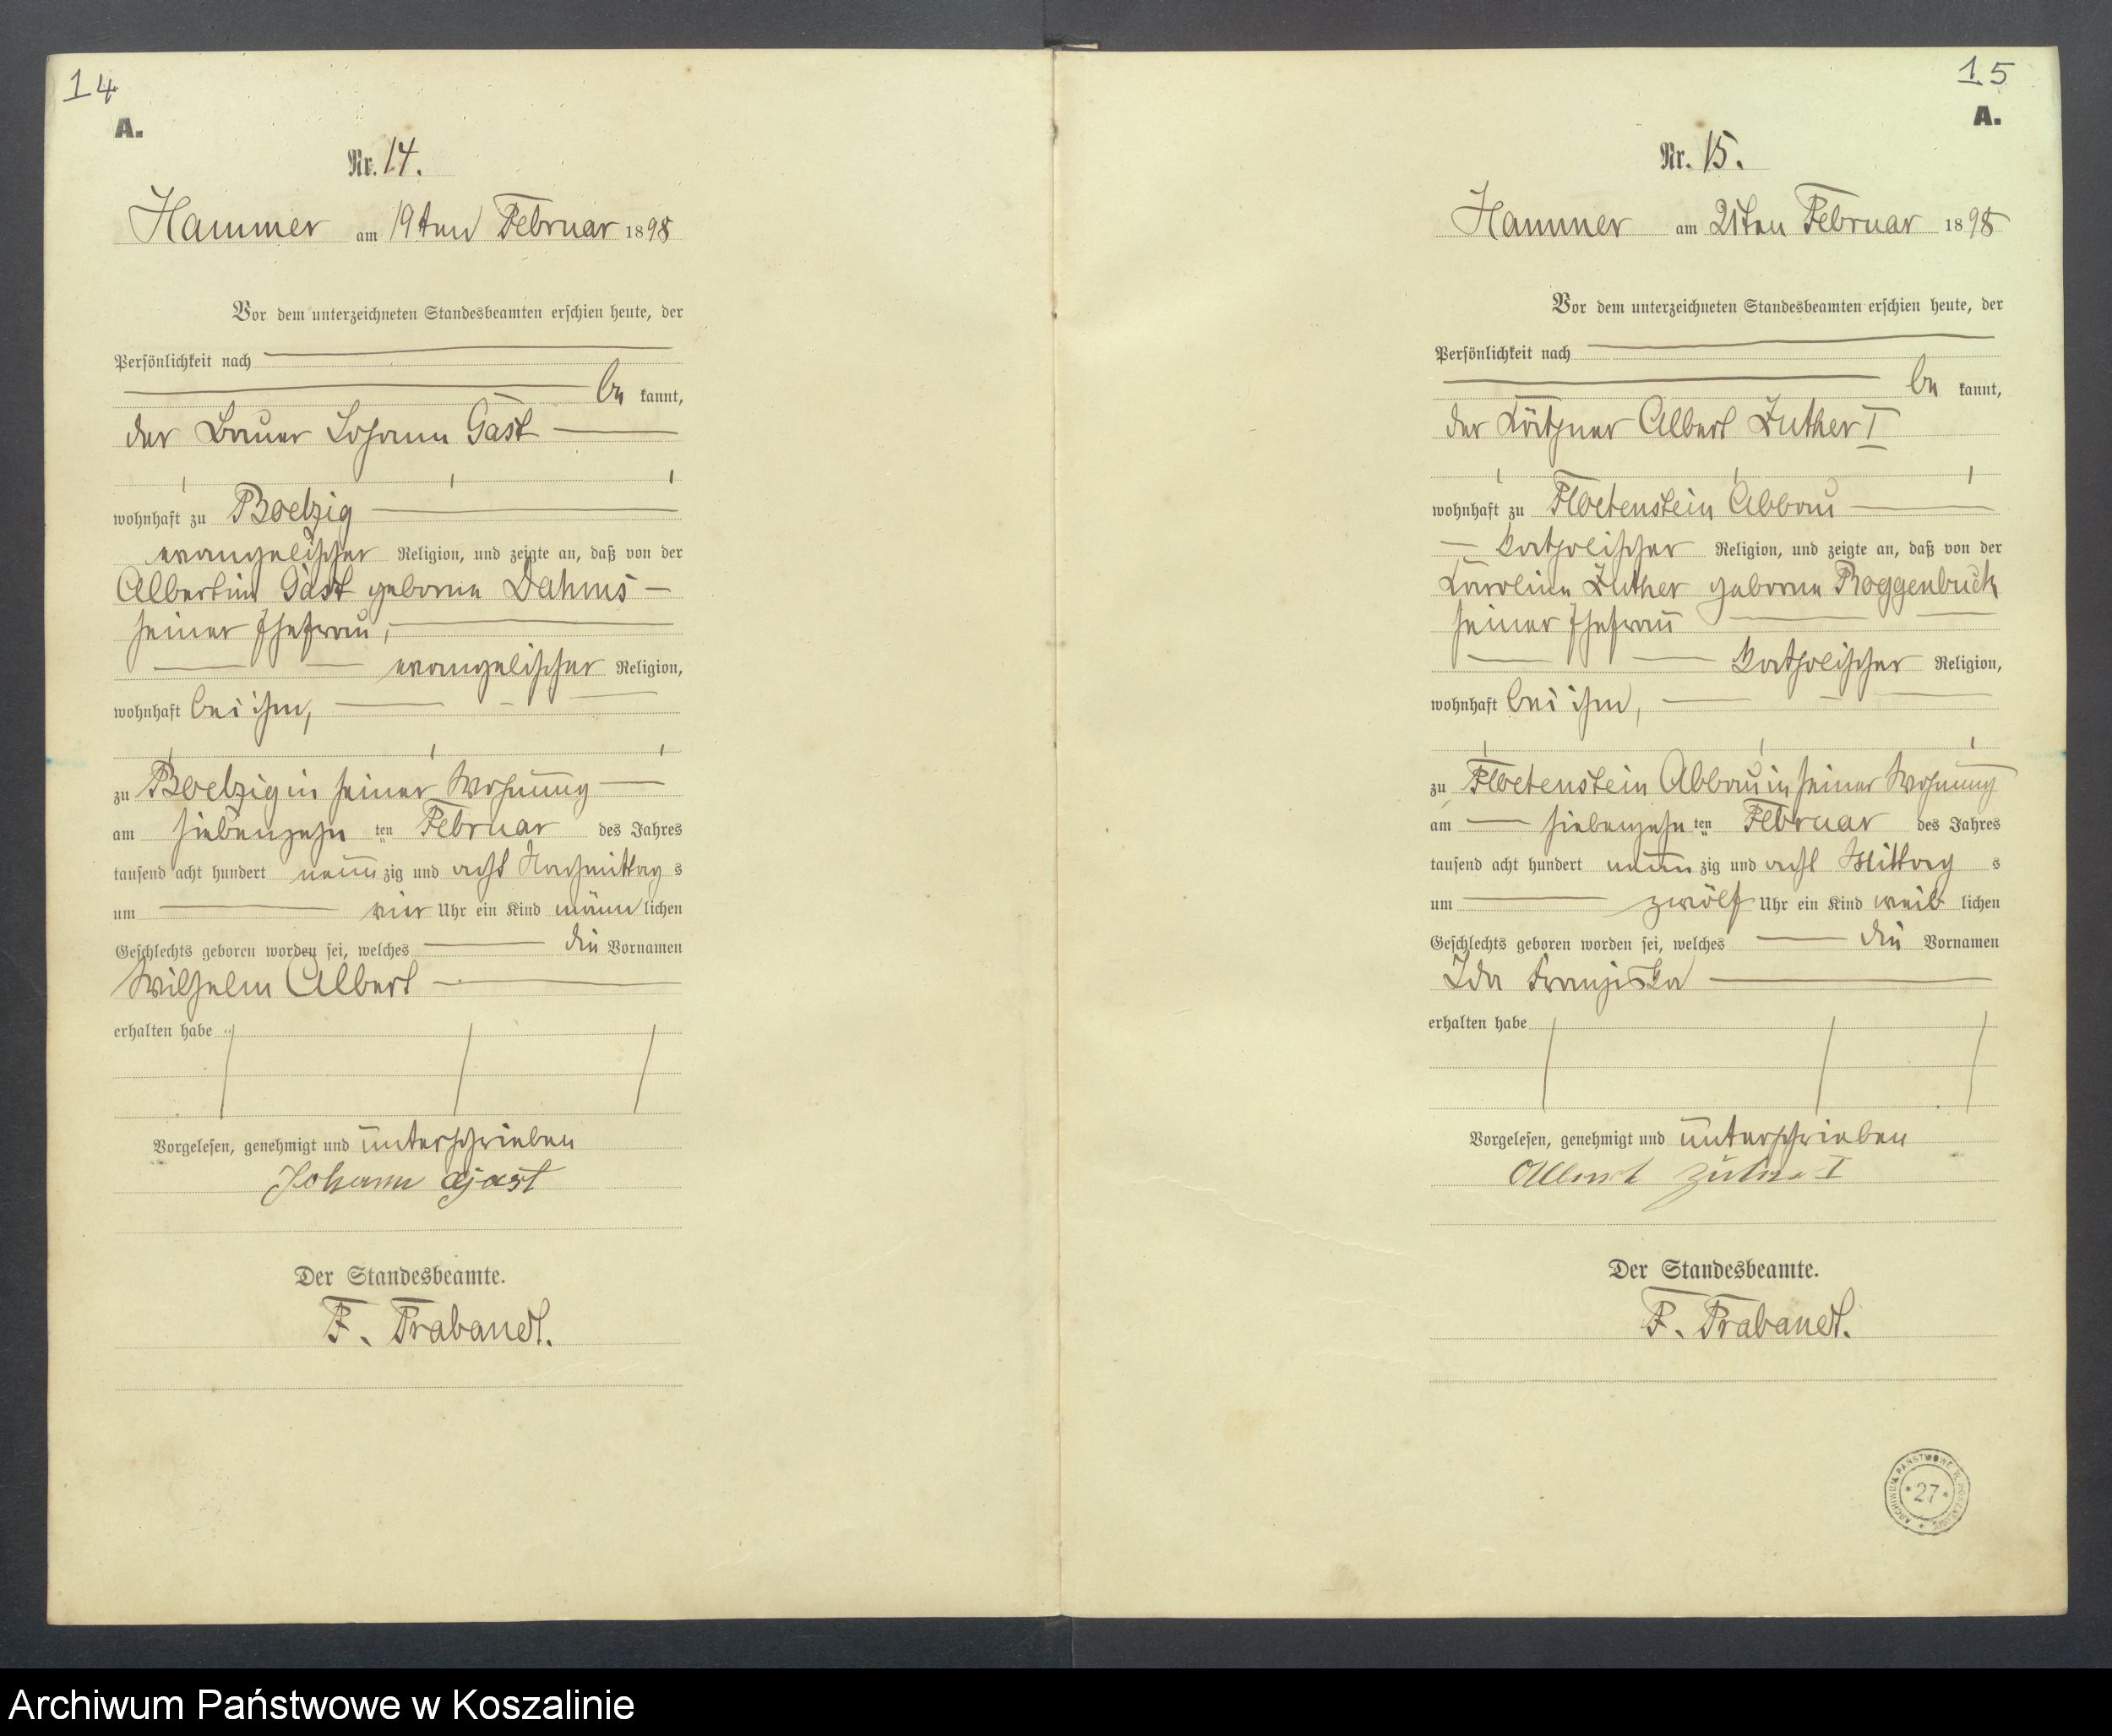 14
A.
Nr. 14.
Hammer am 19ten Februar 1898
Vor dem unterzeichneten Standesbeamten erschien heute, der
Persönlichkeit nach
be kannt,
der Bauer Johann Gast
wohnhaft zu Boelzig
evangelischer Religion, und zeigte an, daß von der
Albertine Gast geborne Dahms
seiner Ehefrau,
evangelischer Religion,
wohnhaft bei ihm,
zu Boelzig in seiner Wohnung
am siebenzehn ten Februar des Jahres
tausend acht hundert neun zig und acht Nachmittag s
um vier Uhr ein Kind männ lichen
Geschlechts geboren worden sei, welches die Vornamen
Wilhelm Albert
erhalten habe
Vorgelesen, genehmigt und unterschrieben
Johann Gast
Der Standesbeamte.
F. Trabandt.
15
A.
Nr. 15.
Hammer am 21ten Februar 1898
Vor dem unterzeichneten Standesbeamten erschien heute, der
Persönlichkeit nach
be kannt,
der Käthner Albert Zuther I
wohnhaft zu Floetenstein Abbau
katholischer Religion, und zeigte an, daß von der
Karoline Zuther geborne Roggenbuck
seiner Ehefrau
katholischer Religion,
wohnhaft bei ihm,
zu Floetenstein Abbau in seiner Wohnung
am siebenzehn ten Februar des Jahres
tausend acht hundert neun zig und acht Mittag s
um zwölf Uhr ein Kind weib lichen
Geschlechts geboren worden sei, welches die Vornamen
Ida Franziska
erhalten habe
Vorgelesen, genehmigt und unterschrieben
Albert Zuther I
Der Standesbeamte.
F. Trabandt.
ARCHIWUM PAŃSTWOWE W KOSZALINIE
* 27 *
Archiwum Państwowe w Koszalinie